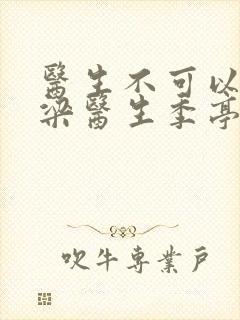 醫生不可以
梁醫生季亭
吹牛專業戶